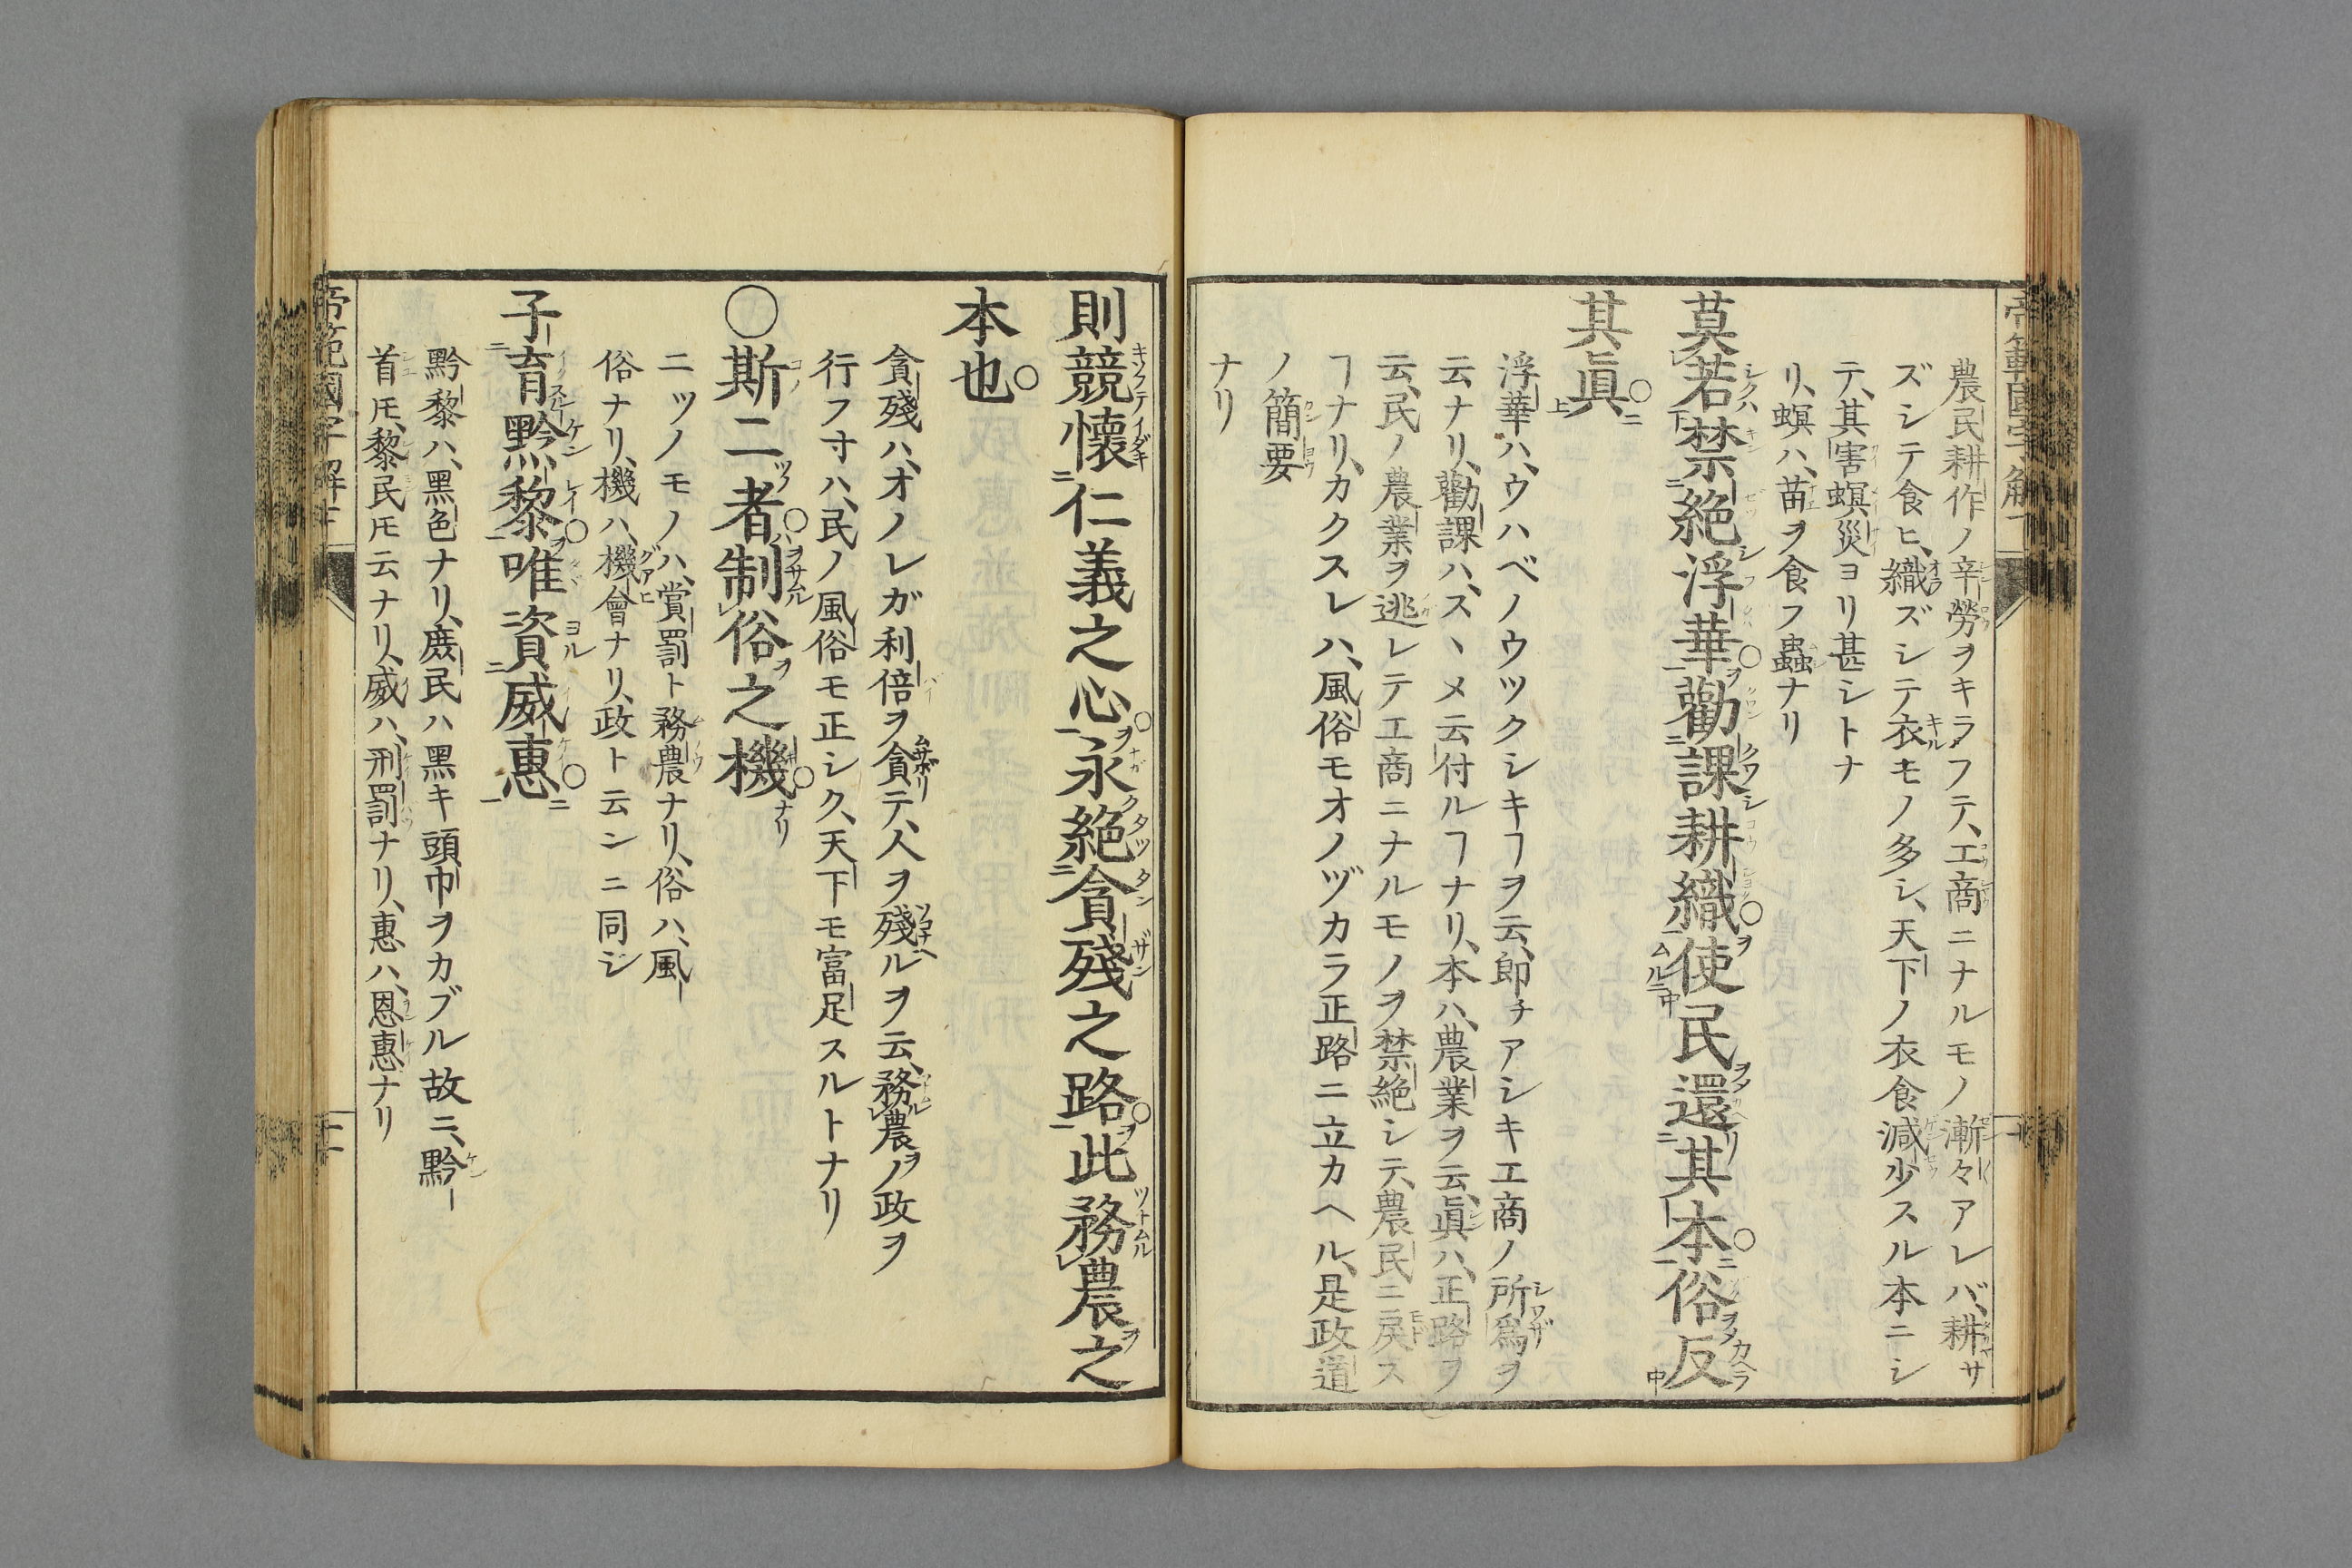 帝範國字解下
農民耕作ノ辛勞ヲキラフテ、工商ニナルモノ漸々アレバ、耕サ
ズシテ食ヒ、織ズシテ衣モノ多シ、天下ノ衣食減少スル本ニシ
テ、其害螟災ヨリ甚シトナ
リ、螟ハ、苗ヲ食フ蟲ナリ
莫若禁絶浮華勸課耕織使民還其本俗反
其眞
浮華ハ、ウハベノウツクシキヿヲ云、卽チアシキ工商ノ所爲ヲ
云ナリ、勸課ハ、スヽメ云付ルヿナリ、本ハ、農業ヲ云、眞ハ、正路ヲ
云、民ノ農業ヲ逃レテ工商ニナルモノヲ禁絶シテ、農民ニ戻ス
ヿナリ、カクスレハ、風俗モオノヅカラ正路ニ立カヘル、是政道
ノ簡要
ナリ
則競懷仁義之心永絶貪殘之路此務農之
本也
貪殘ハ、オノレガ利倍ヲ貪テ、人ヲ殘ルヲ云、務農ノ政ヲ
行フ寸ハ、民ノ風俗モ正シク、天下モ富足スルトナリ
〇斯二者制俗之機
ニツノモノハ、賞罰ト務農ナリ、俗ハ、風
俗ナリ、機ハ、機會ナリ、政ト云ンニ同ジ
子育黔黎唯資威惠
黔黎ハ、黑色ナリ、庶民ハ黑キ頭巾ヲカブル故ニ、黔
首𪜈、黎民𪜈云ナリ、威ハ、刑罰ナリ、惠ハ、恩惠ナリ
帝範國字解下